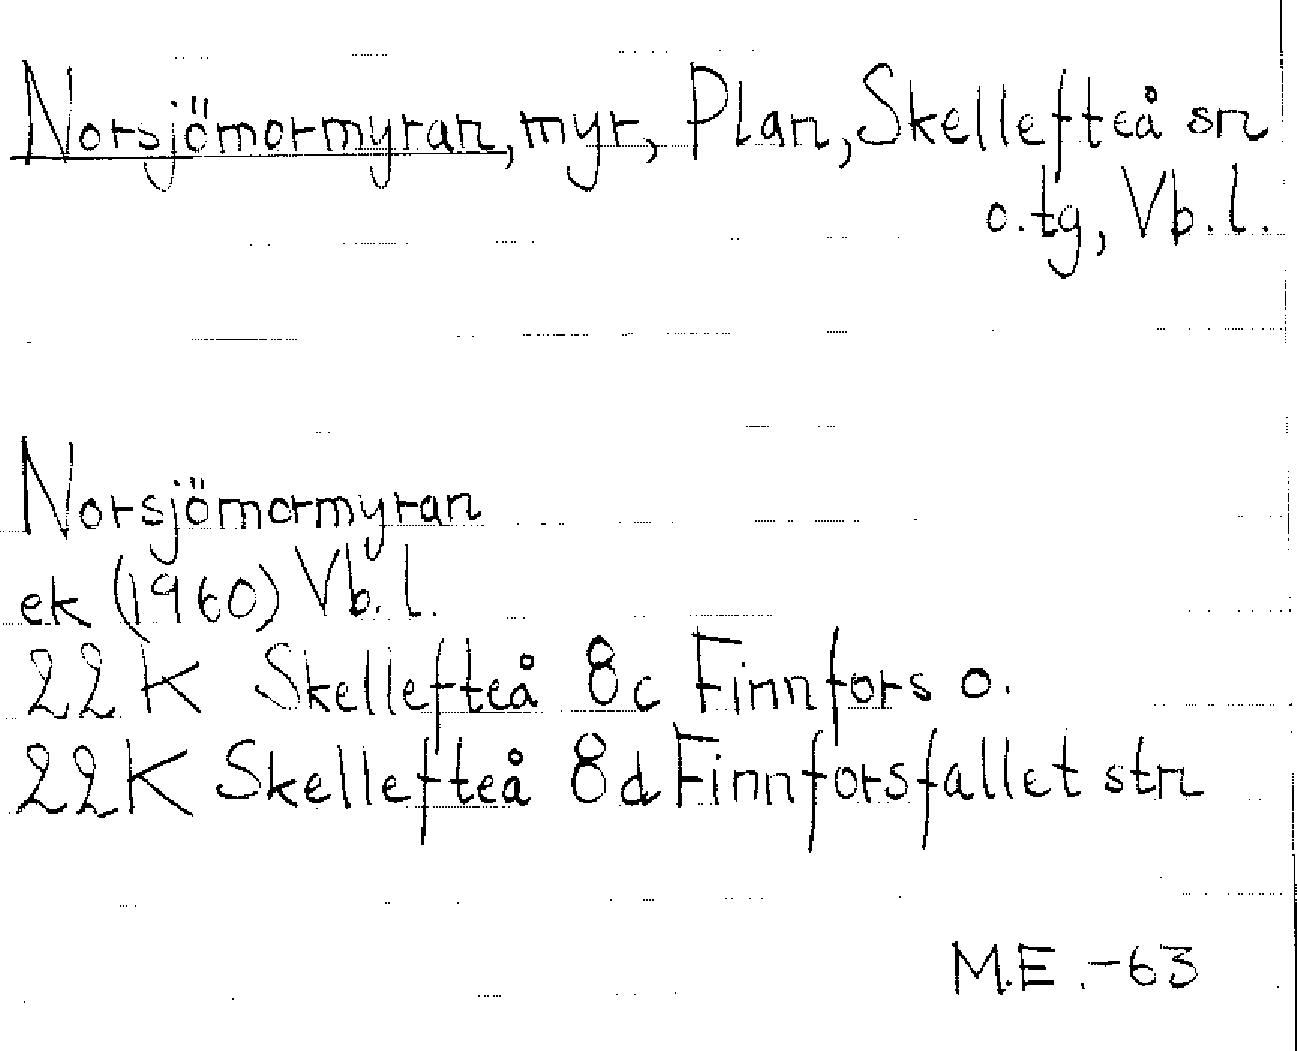 Norsjömormyran, myr, Plan, Skellefteå sn
o. tg, Vb. l.
Norsjömormyran
ek (1960) Vb. l.
22K Skellefteå 8c Finnfors o.
22K Skellefteå 8d Finnforsfallet str
M.E. -63